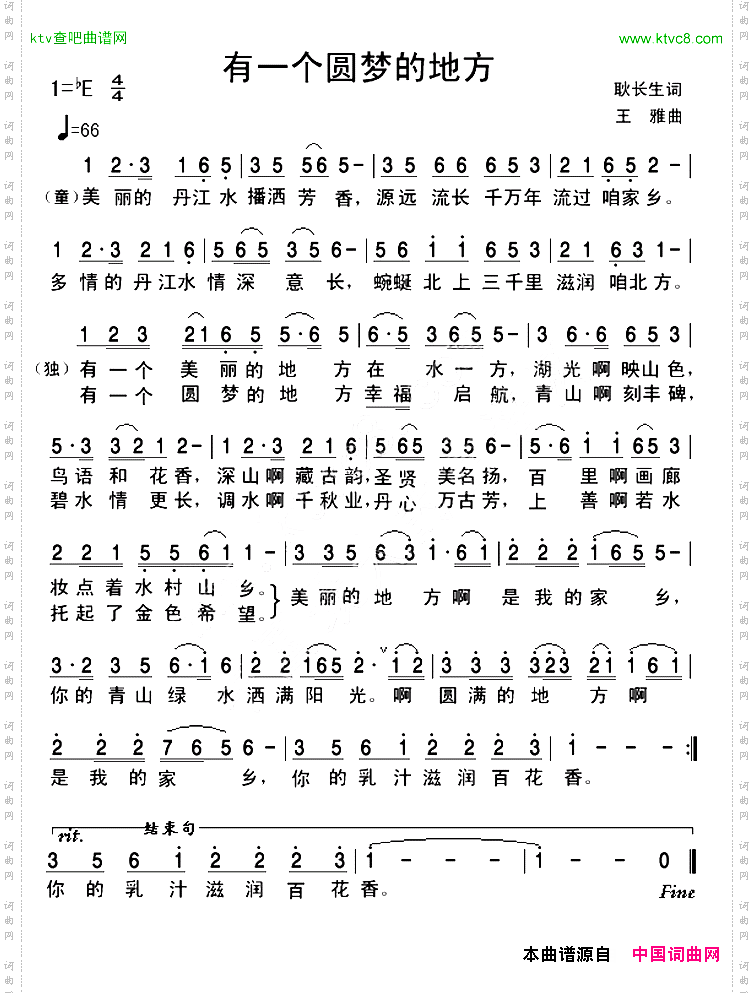 ktv查吧曲谱网
www.ktvc8.com
有一个圆梦的地方
1=♭E 4/4
耿长生词
王 雅曲
♩=66
1 2·3 1 6 5 | 3 5 56 5- | 3 5 6 6 6 5 3 | 2 1 6 5 2- |
（童）美 丽的 丹江水 播洒 芳香，源远 流长 千万年 流过 咱家乡。
1 2·3 2 1 6 | 5 6 5 3 5 6- | 5 6 i i 6 5 3 | 2 1 6 3 1- |
多 情的 丹江水 情 深 意 长，蜿蜒 北 上 三千里 滋润 咱北方。
1 2 3 2 1 6 5 | 5·6 5 | 6·5 3 6 5 5- | 3 6·6 6 5 3 |
（独）有一个 美 丽的地 方在 水一方，湖光啊映山色，
有一个 圆 梦的地 方幸福 启 航，青山啊刻丰碑，
5·3 3 2 1 2- | 1 2·3 2 1 6 | 5 6 5 3 5 6- | 5·6 i i 6 5 3 |
鸟语 和 花香，深山啊 藏古韵，圣贤 美名扬，百 里啊画廊
碧水 情 更长，调水啊 千秋业，丹心 万古芳，上 善啊若水
2 2 1 5 5 6 1 1- | 3 3 5 6 3 i·6 i | 2 2 2 i 6 5 5- |
妆点着水村山 乡。
托起了金色希 望。
美丽的地 方啊 是我的家 乡，
3·2 3 5 6·i 6 | 2 2 i 6 5 2· i 2 | 3 3 3 3 2 3 2 i i 6 i |
你的青山绿 水洒满阳 光。啊 圆满的地 方啊
2 2 2 7 6 5 6- | 3 5 6 i 2 2 2 3 | i - - - :‖
是 我 的家 乡，你的乳汁滋润百花香。
rit. 结束句
3 5 6 i 2 2 2 3 | i - - - | i - - 0 ‖
你 的 乳 汁 滋 润 百 花 香。
Fine
本曲谱源自 中国词曲网